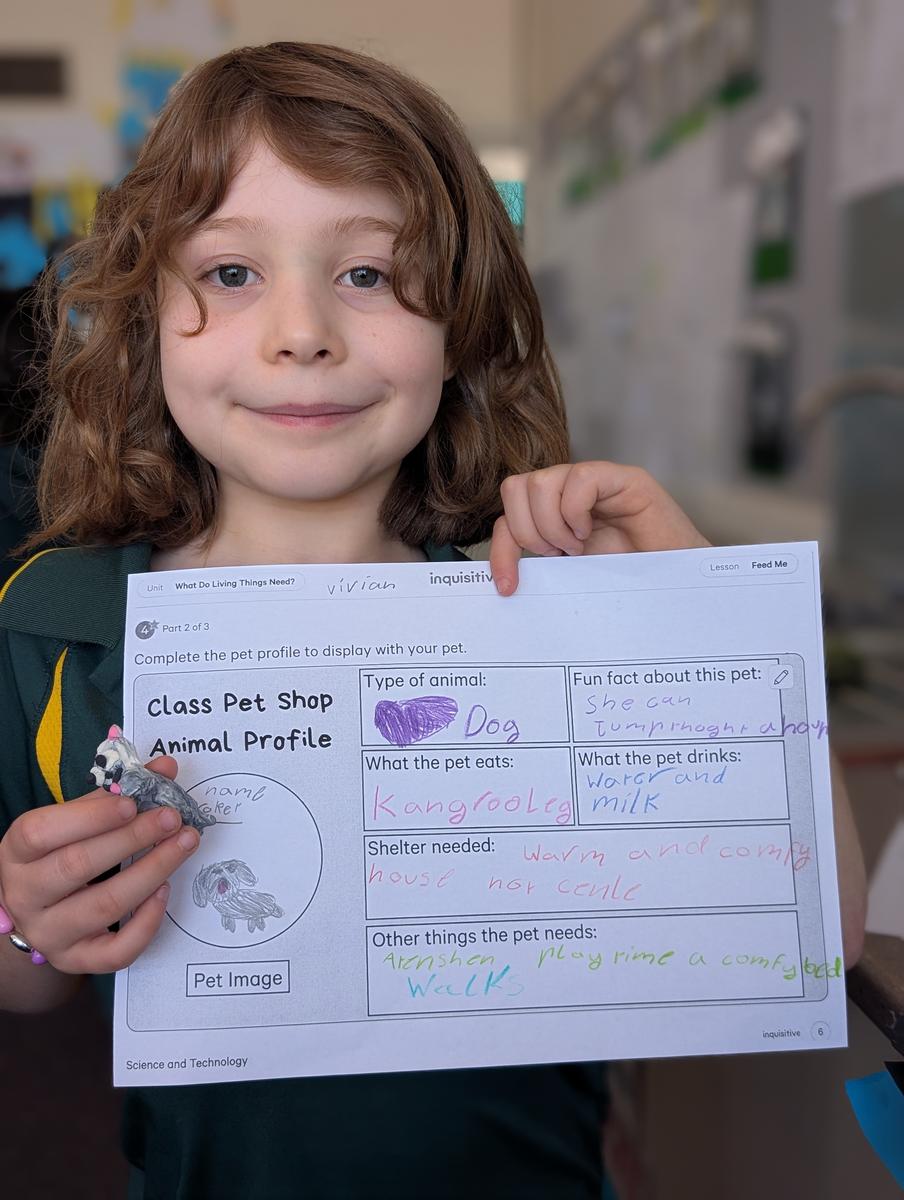 Unit What Do Living Things Need?
vivian
inquisitiv
Lesson Feed Me
4 Part 2 of 3
Complete the pet profile to display with your pet.
Class Pet Shop
Animal Profile
name
oker
Pet Image
Type of animal:
Dog
Fun fact about this pet:
She can
a hoop
What the pet eats:
Kangrooleg
What the pet drinks:
Water and
milk
Shelter needed: Warm and comfy
house not
Other things the pet needs:
Atenshen playtime a comfy bed
Walks
Science and Technology
inquisitive 6